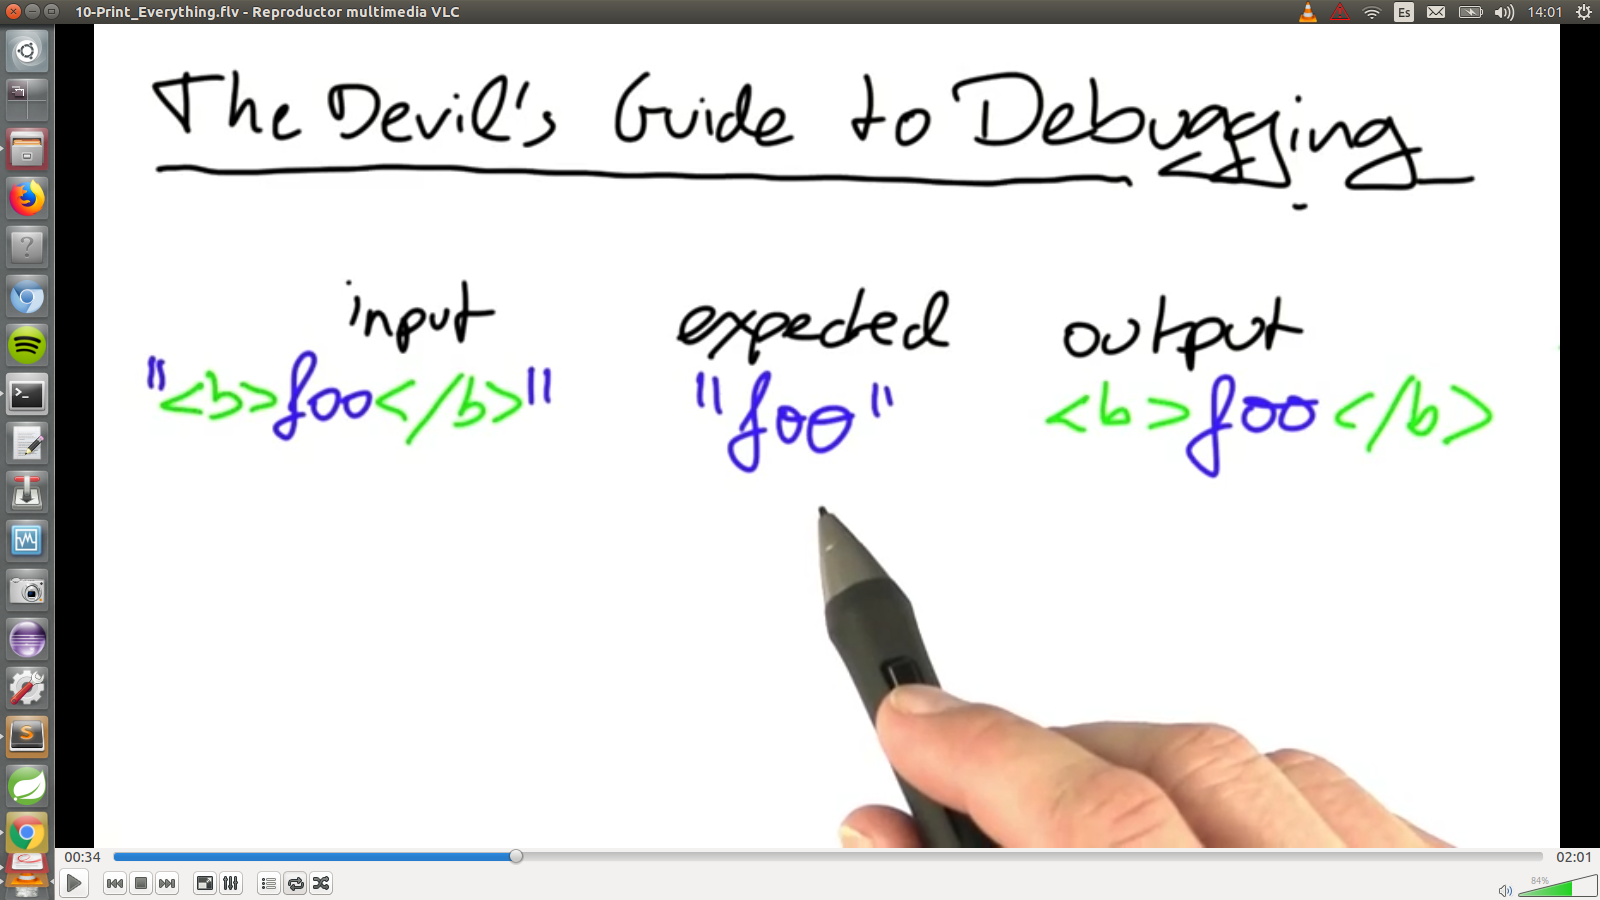 10-Print_Everything.flv - Reproductor multimedia VLC Es 14:01
The Devil's Guide to Debugging
input expected output
"<b>foo</b>" "foo" <b>foo</b>
00:34 02:01
84%